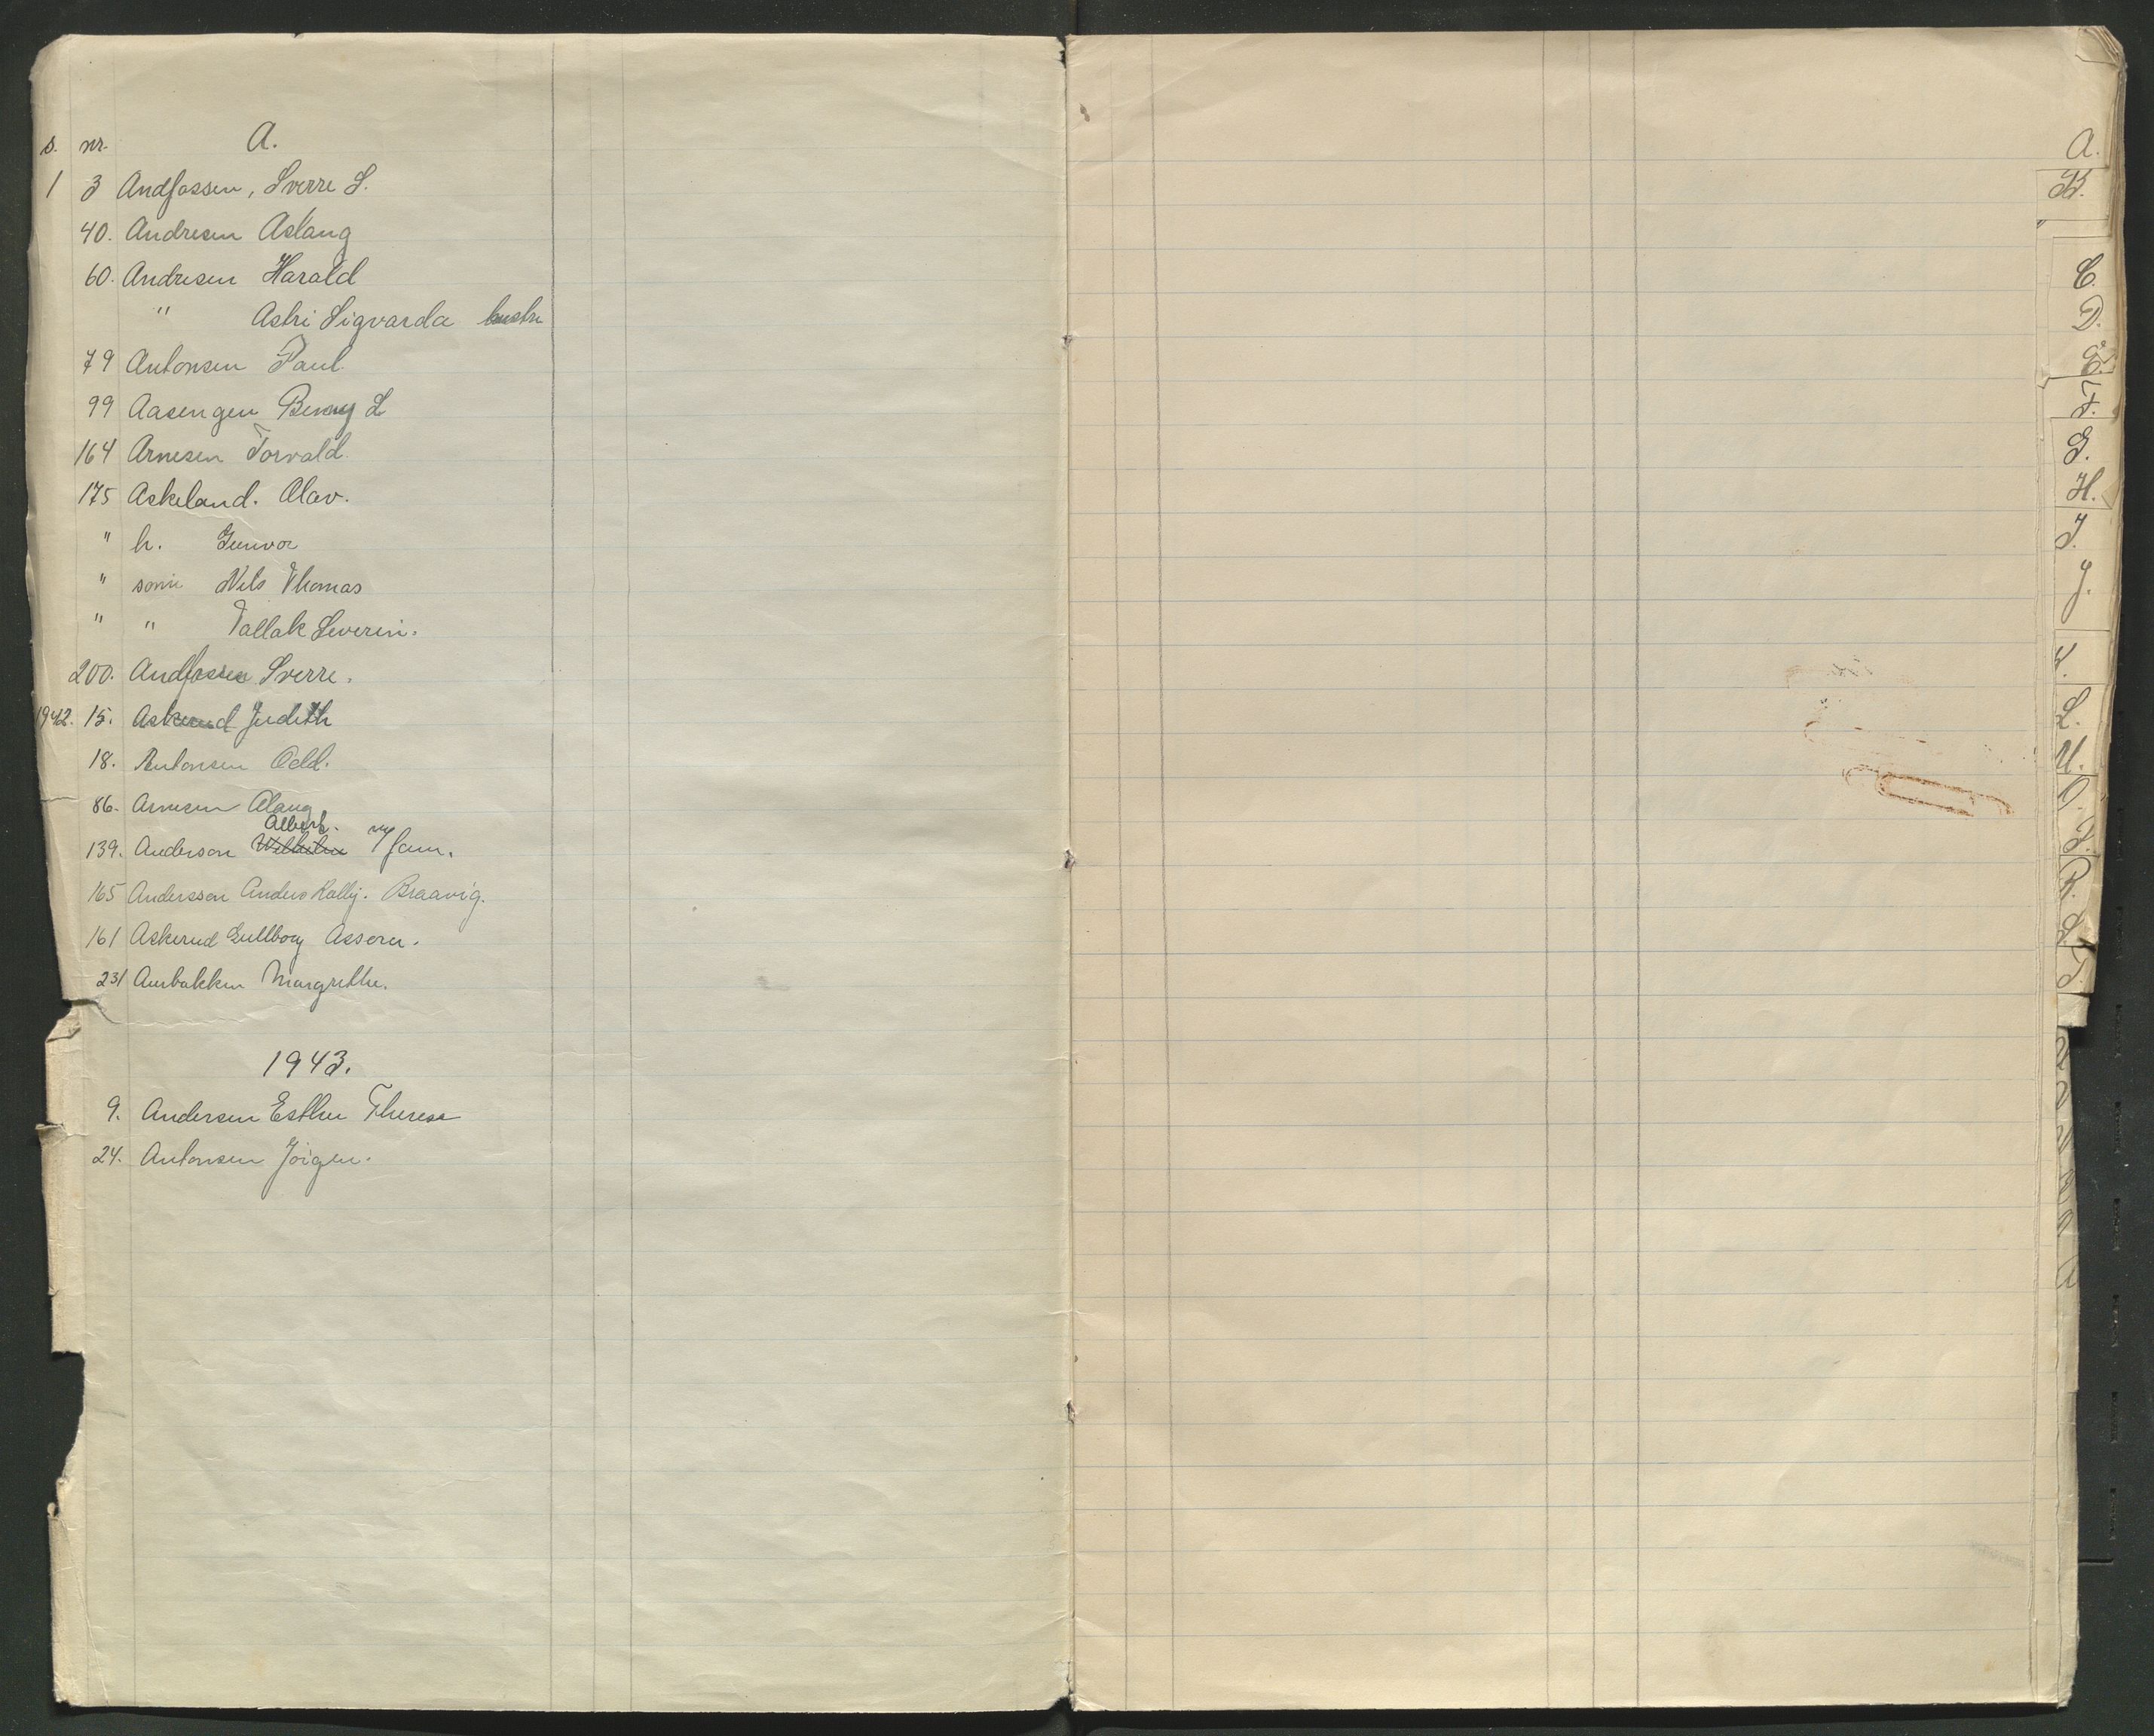 s. nr. A.
1 3 Andfossen, Sverre S.
40. Andresen Aslaug
60. Andresen Harald
" Astri Sigvarda hustru
79 Antonsen Paul
99 Aasengen Benny L
164 Arnesen Torvald.
175 Askeland. Olav.
" h. Gunvor
" sønn Nils Thomas
" " Tallak Severin.
200. Andfossen Sverre.
1942. 15. Askerud Judith
18. Antonsen Odd.
86. Arnesen Olaug
Albert.
139. Anderson Wilhelm m/fam.
165 Andersson Anders Kallej. Braavig.
161 Askerud Gullborg Asseru.
231 Aurbakken Margrethe.
1943.
9. Andersen Esther Therese
24. Antonsen Jörgen.
A.
B.
C.
D.
E.
F.
G.
H.
I.
J.
K.
L.
M.
O.
P.
R.
S.
T.